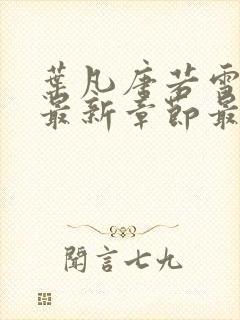 葉凡唐若雪
最新章節最
聞言七九